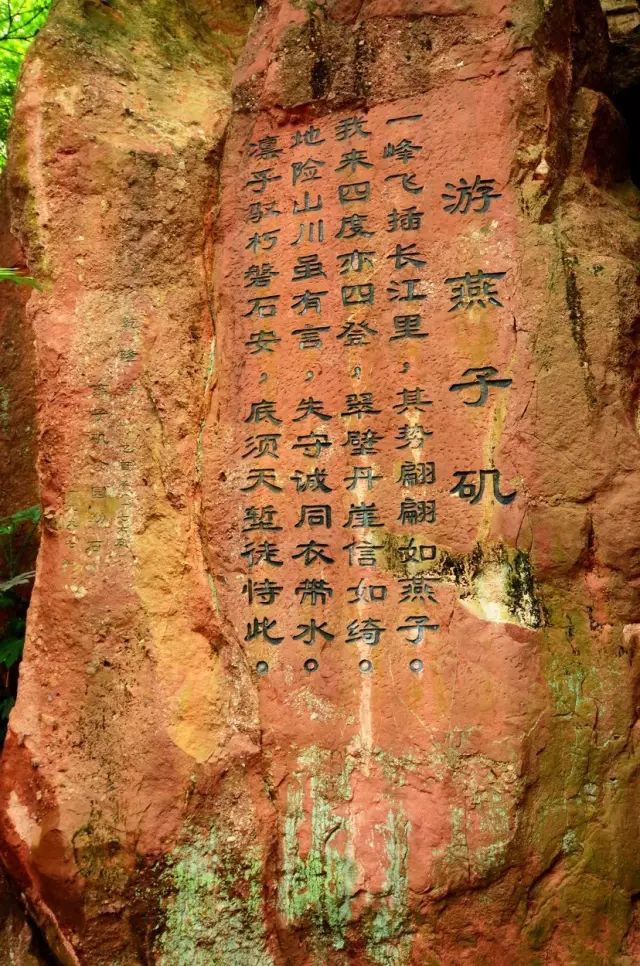 游燕子矶
一峰飞插长江里，其势翩翩如燕子。
我来四度亦四登，翠壁丹崖信如绮。
地险山川虽有言，失守诚同衣带水。
凛乎驭朽磐石安，底须天堑徒恃此。
乾隆